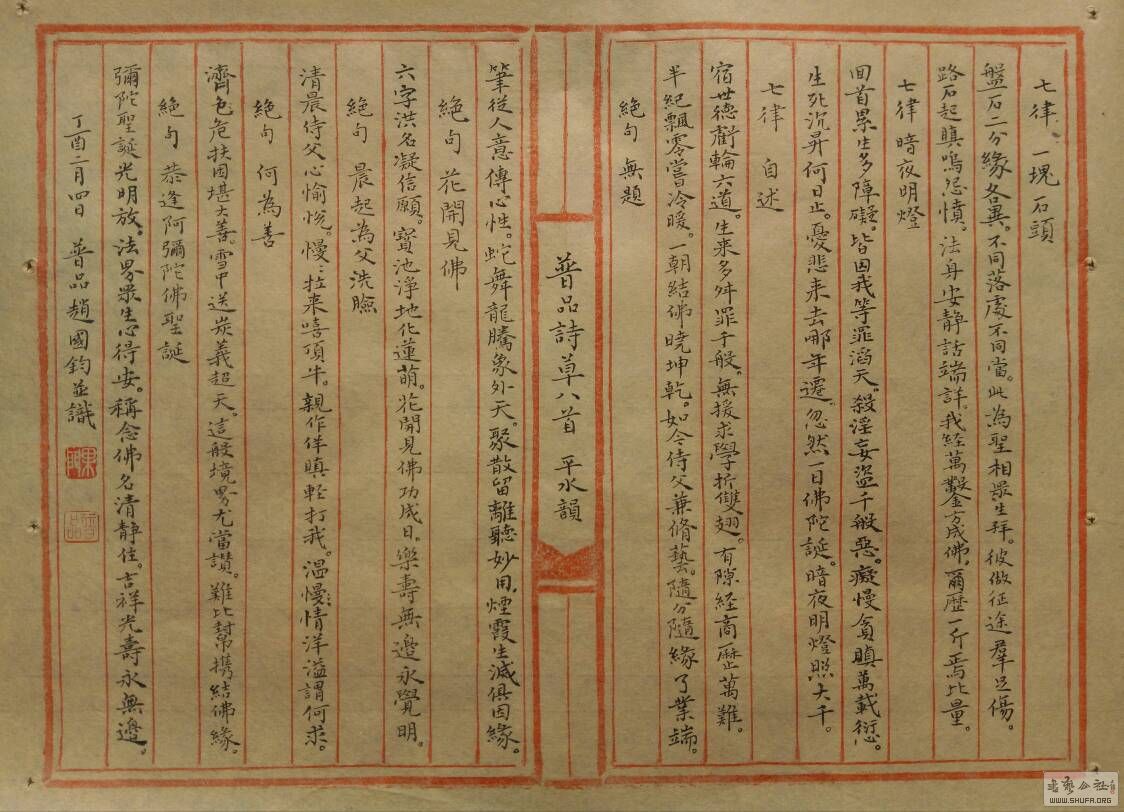 七律 一塊石頭
盤石二分緣各異。不同落處不同當。此為聖相眾生拜。彼做征途羣足傷。
路石起瞋嗚忿憤。法身安靜話端詳。我經萬鑿方成佛。爾歷一斤焉比量。
七律 暗夜明燈
回首累生多障礙。皆因我等罪滔天。殺淫妄盜千般惡。癡慢貪瞋萬載愆。
生死沉昇何日止。憂悲来去哪年遷。忽然一日佛陀誕。暗夜明燈照大千。
七律 自述
宿世德虧輪六道。生來多舛罪千般。無援求學折雙翅。有隙経商歷萬難。
半紀飄零嘗冷暖。一朝結佛曉坤乾。如今侍父兼脩藝。隨分隨緣了業端。
絕句 無題
普品詩草八首 平水韻
筆從人意傳心性。蛇舞龍騰象外天。聚散留離聽妙用。煙霞生滅俱因緣。
絕句 花開見佛
六字洪名凝信願。寶池淨地化蓮萌。花開見佛功成日。樂壽無邊永覺明。
絕句 晨起為父洗臉
清晨侍父心愉悅。慢〻拉来嘻項半。親作佯瞋輕打我。溫慢情洋溢謂何求。
絕句 何為善
濟危扶困堪大善。雪中送炭義超天。這般境界尤當讃。難比幫攜結佛緣。
絕句 恭逢阿彌陀佛聖誕
彌陀聖誕光明放。法界眾生心得安。稱念佛名清靜住。吉祥光壽永無邊。
丁酉二月四日 普品趙國鈞並識
普品
書藝公社
WWW.SHUFA.ORG